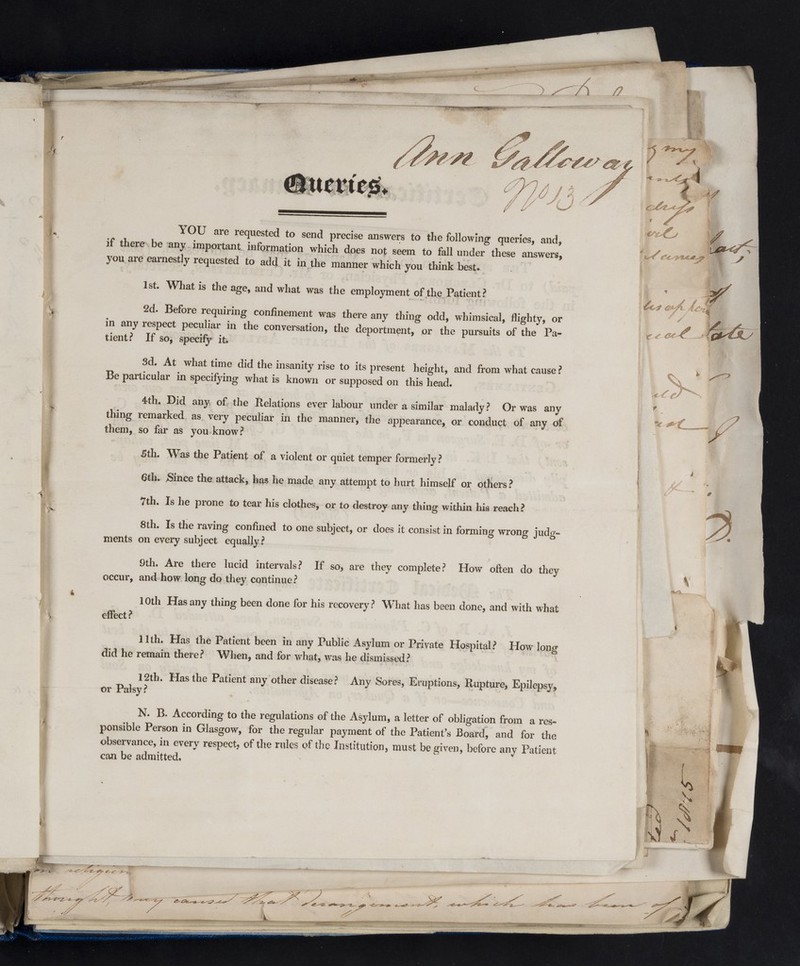 Ann Galloway
Queries.
No 13
YOU are requested to send precise answers to the following queries, and,
if there be any important information which does not seem to fall under these answers,
you are earnestly requested to add it in the manner which you think best.
1st. What is the age, and what was the employment of the Patient?
2d. Before requiring confinement was there any thing odd, whimsical, flighty, or
in any respect peculiar in the conversation, the deportment, or the pursuits of the Pa-
tient? If so, specify it.
3d. At what time did the insanity rise to its present height, and from what cause?
Be particular in specifying what is known or supposed on this head.
4th. Did any of the Relations ever labour under a similar malady? Or was any
thing remarked as very peculiar in the manner, the appearance, or conduct of any of
them, so far as you know?
5th. Was the Patient of a violent or quiet temper formerly?
6th. Since the attack, has he made any attempt to hurt himself or others?
7th. Is he prone to tear his clothes, or to destroy any thing within his reach?
8th. Is the raving confined to one subject, or does it consist in forming wrong judg-
ments on every subject equally?
9th. Are there lucid intervals? If so, are they complete? How often do they
occur, and how long do they continue?
10th Has any thing been done for his recovery? What has been done, and with what
effect?
11th. Has the Patient been in any Public Asylum or Private Hospital? How long
did he remain there? When, and for what, was he dismissed?
12th. Has the Patient any other disease? Any Sores, Eruptions, Rupture, Epilepsy,
or Palsy?
N. B. According to the regulations of the Asylum, a letter of obligation from a res-
ponsible Person in Glasgow, for the regular payment of the Patient's Board, and for the
observance, in every respect, of the rules of the Institution, must be given, before any Patient
can be admitted.
my
1815
thought may caused that derangement, which has been of